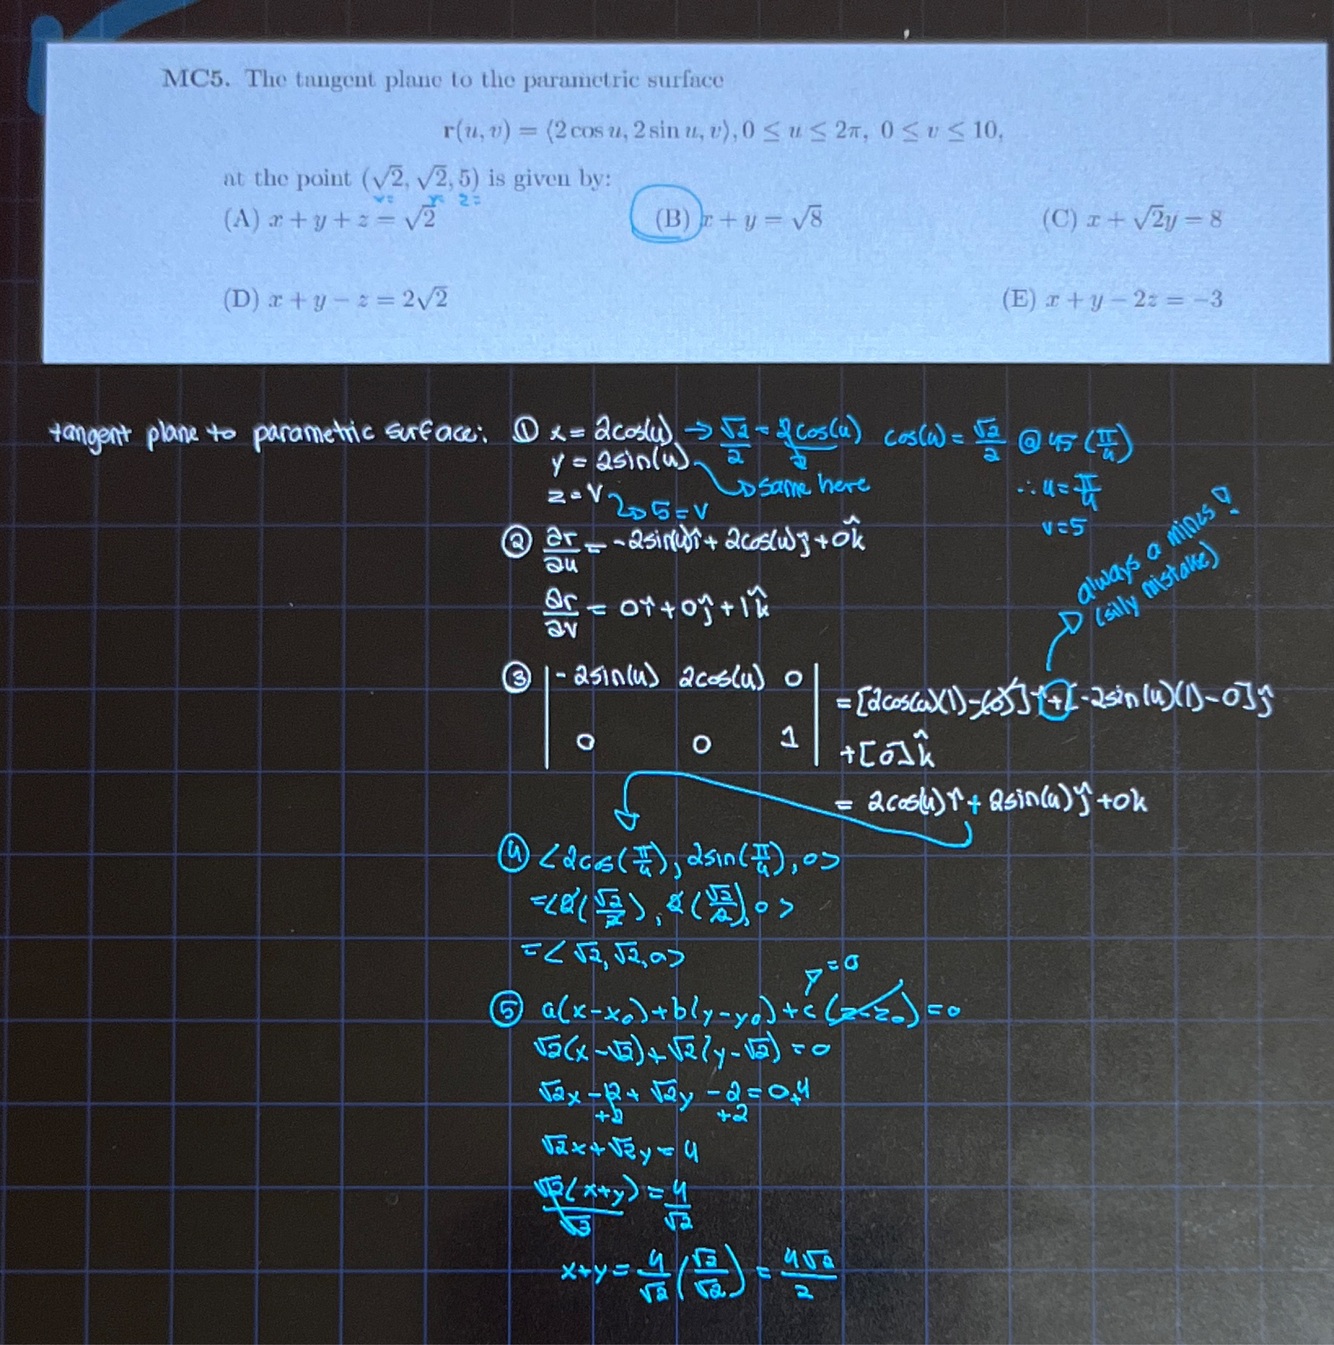 MC5. The tangent plane to the parametric surface
r(u, v) = ⟨2 cos u, 2 sin u, v⟩, 0 ≤ u ≤ 2π, 0 ≤ v ≤ 10,
at the point (√2, √2, 5) is given by:
x= y= z=
(A) x + y + z = √2 (B) x + y = √8 (C) x + √2y = 8
(D) x + y − z = 2√2 (E) x + y − 2z = −3
tangent plane to parametric surface: ① x = 2cos(u) → √2/2 = 2cos(u)/2 cos(u) = √2/2 @ 45 (π/4)
y = 2sin(u) → same here ∴ u = π/4
z = v → 5 = v v = 5
② ∂r/∂u = -2sin(u)î + 2cos(u)ĵ + 0k̂
always a minus!
(silly mistake)
∂r/∂v = 0î + 0ĵ + 1k̂
③ | -2sin(u) 2cos(u) 0 |
| 0 0 1 |
= [2cos(u)(1) - (0)]î + [-2sin(u)(1) - 0]ĵ
+ [0]k̂
= 2cos(u)î + 2sin(u)ĵ + 0k
④ <2cos(π/4), 2sin(π/4), 0>
= <2(√2/2), 2(√2/2), 0>
= <√2, √2, 0>
= 0
⑤ a(x-x₀) + b(y-y₀) + c(z-z₀) = 0
√2(x-√2) + √2(y-√2) = 0
√2x - 2 + √2y - 2 = 0+4
+2 +2
√2x + √2y = 4
√2(x+y)/√2 = 4/√2
x+y = 4/√2 (√2/√2) = 4√2/2